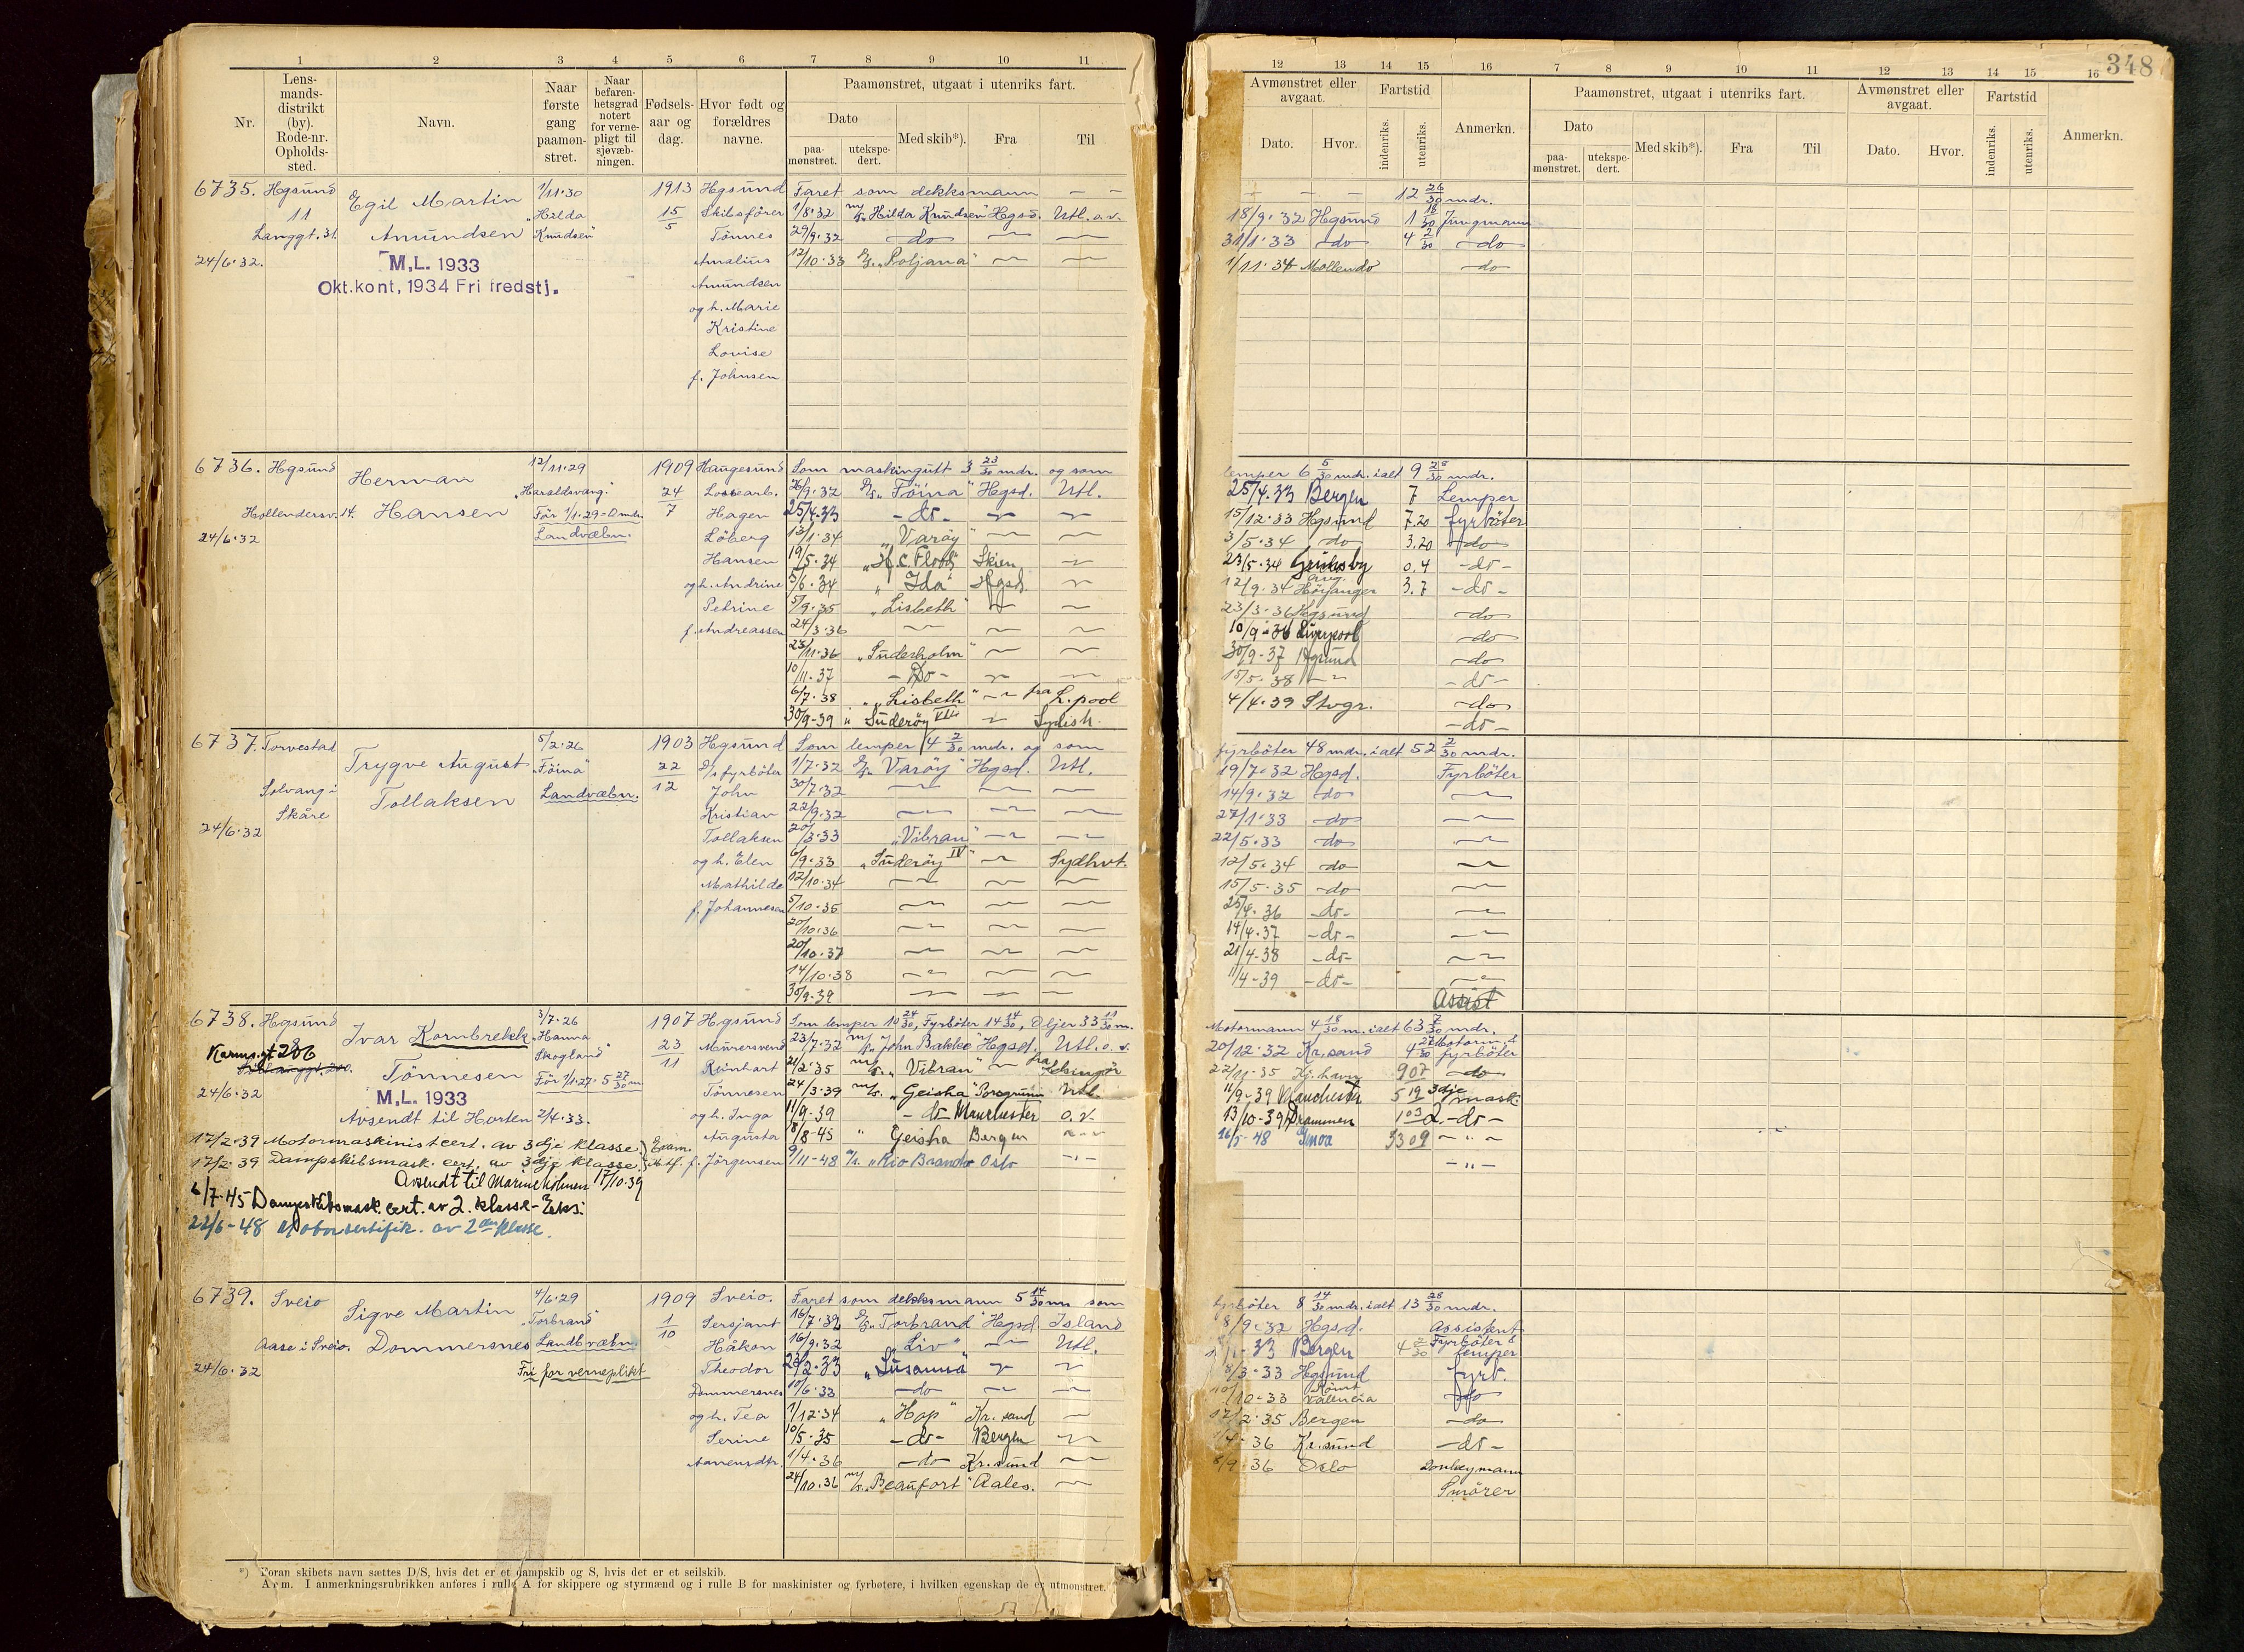 1 2 3 4 5 6 7 8 9 10 11
Nr.
Lens-
mands-
distrikt
(by).
Rode-nr.
Opholds-
sted.
Navn.
Naar
første
gang
paamøn-
stret.
Naar
befaren-
hetsgrad
notert
for verne-
pligt til
sjøvæb-
ningen.
Fødsels-
aar og
dag.
Hvor født og
forældres
navne.
Paamønstret, utgaat i utenriks fart.
Dato
paa-
mønstret.
utekspe-
dert.
Med skib*).
Fra
Til
6735. Hgsund
11
Langgt. 31.
24/6.32.
Egil Martin
Amundsen
M.L. 1933
Okt.kont, 1934 Fri fredstj.
1/11.30
"Hilda
Knudsen"
1913
15
5
Hgsund
Skibsfører
Tönnes
Amalius
Amundsen
og h. Marie
Kristine
Lovise
f. Johnsen
Faret som dekksmann — —
1/8.32 m/s. "Hilda Knudsen" Hgsd. Utl. o.v.
29/9.32 do
12/10.33 D/s. "Poljana"
6736. Hgsund
Hollendersv. 14.
24/6.32
Herman
Hansen
12/11.29
"Haraldsvang."
Før 1/1.29 = 0 mdr.
Landvæbn.
1909
24
7
Haugesund
Lossearb.
Hagen
Löberg
Hansen
og h. Andrine
Petrine
f. Andreassen
Som maskingutt 3 23/30 mdr. og som
26/9.32 D/s. "Töina" Hgsd. Utl.
25/4.33 - do -
13/1.34 "Varöy"
19/5.34 "H.C. Flood" Skien
5/6.34 "Ida" Hgsd.
5/9.35 "Lisbeth"
24/3.36
23/11.36 "Suderholm"
10/11.37 - Do -
6/7.38 "Lisbeth" fra L.pool
30/9-39 "Suderøy VIII" Sydish.
6737. Torvestad
Solvang i
Skåre
24/6.32
Trygve August
Tollaksen
5/2.26
"Töina"
Landvæbn.
1903
22
12
Hgsund
D/s fyrböter
John
Kristian
Tollaksen
og h. Elen
Mathilde
f. Johannesen
Som lemper 4 2/30 mdr. og som
1/7.32 D/s. "Varöy" Hgsd. Utl.
30/7.32
22/9.32
20/3.33 "Vibran"
6/9.33 "Suderöy IV" Sydhvt.
12/10.34
5/10.35
20/10.36
20/10.37
14/10.38
30/9.39
6738. Hgsund
Karmsgt 206
24/6.32
Ivar Kornbrekk
Tönnesen
M.L. 1933
Avsendt til Horten 2/4.33.
3/7.26
"Hanna
Skogland"
Før 1/1.27 = 5 27/30 m
1907
23
11
Hgsund
Murersvend
Reinhart
Tönnesen
og h. Inga
Augusta
f. Jörgensen
Som lemper 10 24/30, Fyrböter 14 14/30, Oljer 33 11/30 m.
23/7.32 m/s. "John Bakke" Hgsd. Utl. o. v.
21/2.35 m/s. "Vibran" fra Helsingør
24/3.39 m/s. "Geisha" Brevik Utl.
11/9-39 - do - Manchester o.v.
8/8-45 " Geisha Bergen
9/11-48 m/s. "Rio Branco" Oslo - " -
17/2.39 Motormaskinistcert. av 3dje klasse. } Exam.
17/2.39 Dampskibsmask. cert. av 3dje klasse.
Avsendt til Marineholmen 17/10.39
6/7-45 Dampskibsmask. cert. av 2. klasse -
22/6-48 Motorsertifik. av 2den klasse.
6739. Sveio
Aase i Sveio.
24/6.32
Sigve Martin
Dommersnes
4/6.29
"Torbrand"
Landvæbn.
Fri for verneplikt
1909
1
10
Sveio.
Sersjant
Håkon
Theodor
Dommersnes
og h. Tea
Serine
Aanensdtr.
Faret som dekksmann 5 14/30 m som
16/7.32 D/s. "Torbrand" Hgsd. Island
16/9.32 "Liv" Utl.
23/2.33 "Susanna"
10/6.33 do
1/12.34 "Hop" Kr. sand
10/5.35 - do - Bergen
1/4.36 do Kr. sund
24/10.36 m/s. "Beaufort" Aales.
*) Foran skibets navn sættes D/S, hvis det er et dampskib og S, hvis det er et seilskib.
Anm. I anmerkningsrubrikken anføres i rulle A for skippere og styrmænd og i rulle B for maskinister og fyrbøtere, i hvilken egenskap de er utmønstret.
348
12 13 14 15 16 7 8 9 10 11 12 13 14 15 16
Avmønstret eller
avgaat.
Dato.
Hvor.
Fartstid
indenriks.
utenriks.
Anmerkn.
Paamønstret, utgaat i utenriks fart.
Dato
paa-
mønstret.
utekspe-
dert.
Med skib*).
Fra
Til
Avmønstret eller
avgaat.
Dato.
Hvor.
Fartstid
indenriks.
utenriks.
Anmerkn.
— — — 12 26/30 mdr.
18/9.32 Hgsund 1 18/30 Jungmann
31/1.33 do 4 2/30 do
1/11.34 Mollendo do
lemper 6 5/30 mdr. ialt 9 28/30 mdr.
25/4.33 Bergen 7 Lemper
15/12.33 Hgsund 7.20 fyrbøter
3/5.34 do 3.20 do
23/5.34 Grimsby 0.4 - do -
12/9.34 Höyanger 3.7 - do -
23/3.36 Hgsund do
10/9-36 Liverpool do
30/9-37 Hgsund do
15/5-38 - do -
4/4.39 Stvgr. do
- do -
fyrböter 48 mdr. ialt 52 2/30 mdr.
19/7.32 Hgsd. Fyrböter
14/9.32 do
27/1.33 do
22/5.33 do
12/5.34 do
15/5.35 do
25/4.36 - do -
14/4.37 - do -
21/4-38 - do -
11/4-39 - do -
Assist
Motormann 4 18/30 m. ialt 63 7/30 mdr.
20/12.32 Kr. sand 4 27/30 Motorm. & fyrböter
22/11-35 Kj.havn 907 do
11/9-39 Manchester 5 19 3dje mask.
13/10-39 Drammen 1 03 2. - do -
16/5-48 Genoa 3309 - " -
- " -
fyrböter 8 14/30 mdr. ialt 13 28/30 mdr.
8/9.32 Hgsd. Assistent
33 Bergen 4 2/30 Fyrböter & lemper
8/3-33 Hgsund fyrb.
10/10-33 Valencia do
12/2.35 Bergen do
36 Kr.sund - do -
8/9.36 Oslo Donkeymann
Smörer